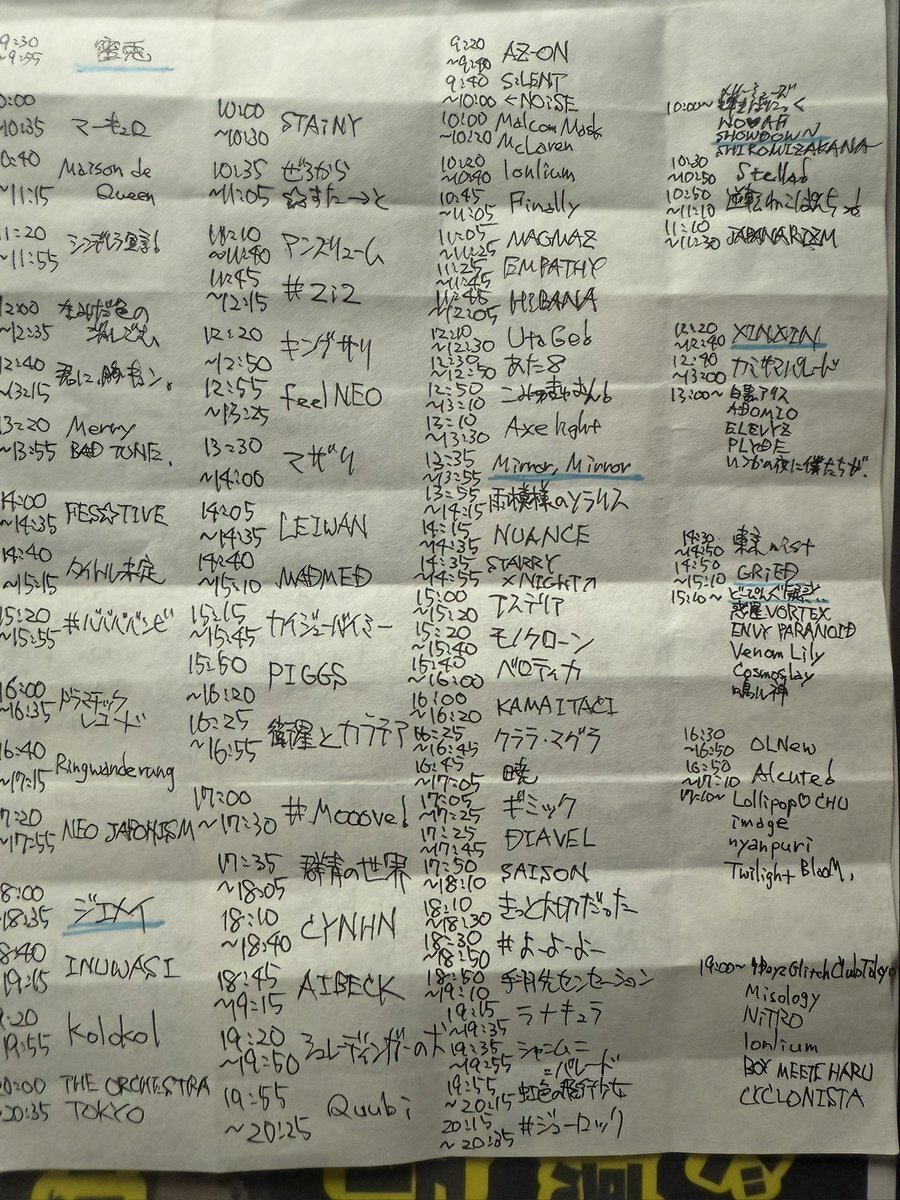 9:30
~9:55 蜜兎
10:00
~10:35 マーキュロ
10:40
~11:15 Maison de
Queen
11:20
~11:55 シンデレラ宣言!
12:00
~12:35 なみだ色の
消しごむ
12:40
~13:15 君に、胸キュン。
13:20
~13:55 Merry
BAD TUNE.
14:00
~14:35 FES☆TIVE
14:40
~15:15 タイトル未定
15:20
~15:55 #ババババンビ
16:00
~16:35 ドラマチック
レコード
16:40
~17:15 Ringwanderung
17:20
~17:55 NEO JAPONISM
18:00
~18:35 ジエメイ
18:40
19:15 INUWASI
19:20
19:55 Kolokol
20:00
~20:35 THE ORCHESTRA
TOKYO
10:00
~10:30 STAiNY
10:35
~11:05 ぜろから
☆すたーと
11:10
~11:40 アンスリューム
11:45
~12:15 #2i2
12:20
~12:50 キングサリ
12:55
~13:25 feelNEO
13:30
~14:00 マザリ
14:05
~14:35 LEIWAN
14:40
~15:10 MADMED
15:15
~15:45 カイジューバイミー
15:50
~16:20 PIGGS
16:25
~16:55 衛星とカラテア
17:00
~17:30 #Mooove!
17:35
~18:05 群青の世界
18:10
~18:40 CYNHN
18:45
~19:15 AIBECK
19:20
~19:50 シュレディンガーの犬
19:55
~20:25 Quubi
9:20
~9:40 AZ-ON
9:40
~10:00 SiLENT
<NOiSE
10:00
~10:20 Malcom Mask
McLaren
10:20
~10:40 Ionlium
10:45
~11:05 Finally
11:05
~11:25 MAGMAZ
11:25
~11:45 EMPATHY
11:45
~12:05 HiBANA
12:10
~12:30 UtaGe!
12:30
~12:50 あた8
12:50
~13:10 こみゅまゃまん!
13:10
~13:30 Axelight
13:35
~13:55 Mirror, Mirror
13:55
~14:15 雨模様のソラリス
14:15
~14:35 NUANCE
14:35
~14:55 STARRY
×NIGHT
15:00
~15:20 アステリア
15:20
~15:40 モノクローン
15:40
~16:00 ベロティカ
16:00
~16:20 KAMAITACI
16:25
~16:45 クララ・マグラ
16:45
~17:05 暁
17:05
~17:25 ギミック
17:25
~17:45 DIAVEL
17:50
~18:10 SAISON
18:10
~18:30 きっと大切だった
18:30
~18:50 #よーよーよー
18:50
~19:10 手羽先センセーション
19:15
~19:35 ラナキュラ
19:35
~19:55 シャニムニ
=パレード
19:55
~20:15 虹色の飛行少女
20:15
~20:35 #ジューロック
10:00~
NO♥AH
SHOWDOWN
SHIROMIZAKANA
10:30
~10:50 Stella!
10:50
~11:10 逆転わこはんち!
11:10
~11:30 JAPANARIZM
12:20
~12:40 XINXIN
12:40
~13:00 カミサマパレード
13:00~ 白黒アリス
ADOMIO
ELEVYZ
PLYDE
いつかの夜に僕たちが、
14:30
~14:50 東京mist
14:50
~15:10 GRiED
15:10~ どーぴんぐ
惑星VORTEX
ENVY PARANOID
Venom Lily
Cosmoslay
鳴ル神
16:30
~16:50 OLNew
16:50
~17:10 Alcute!
17:10~ Lollipop♡CHU
image
nyanpuri
Twilight BlooM,
19:00~ 9DayzGlitchClubTokyo
Misology
NiTRO
Ionlium
BOY MEETS HARU
CYCLONISTA